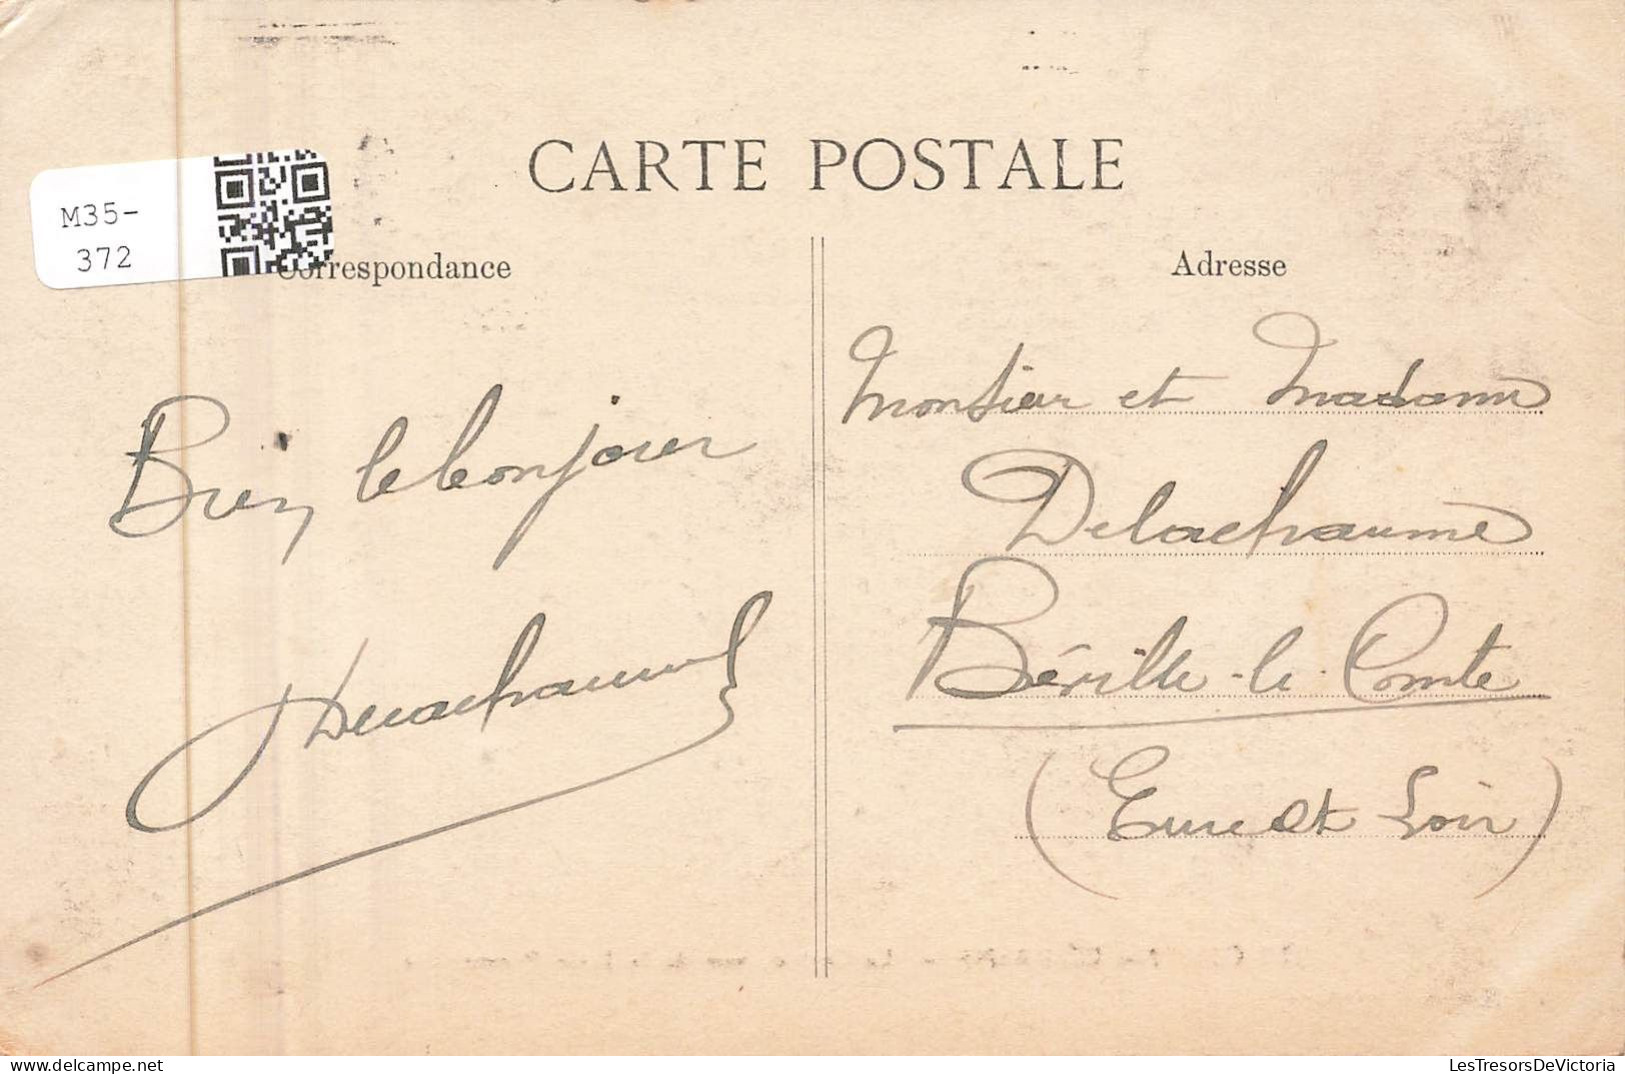 CARTE POSTALE
M35-
372
Correspondance
Bien le bonjour
Delachaume
Adresse
Monsieur et Madame
Delachaume
Béville-le-Comte
(Eure et Loir)
LesTresorsDeVictoria